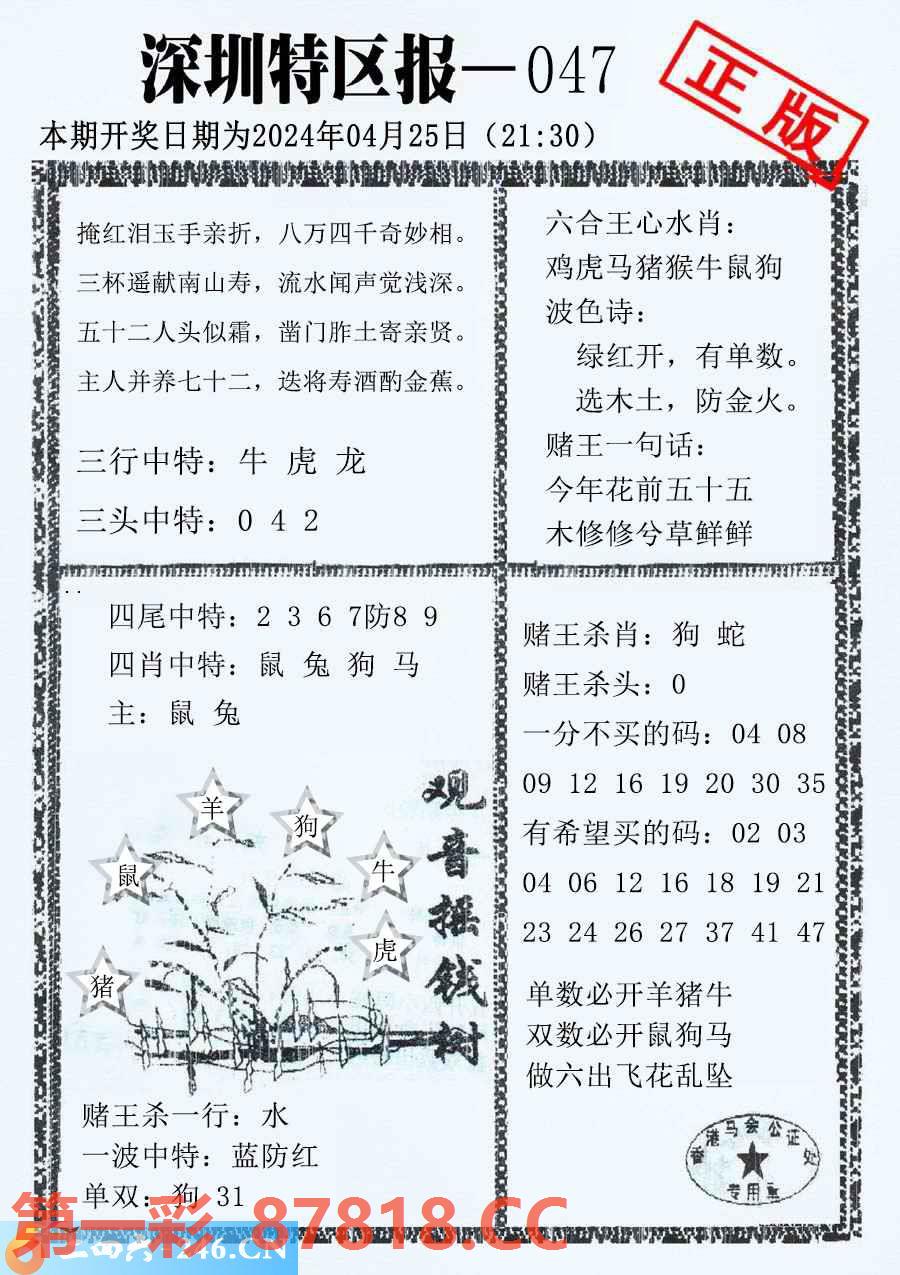 深圳特区报—047
正版
本期开奖日期为2024年04月25日（21:30）
掩红泪玉手亲折，八万四千奇妙相。
三杯遥献南山寿，流水闻声觉浅深。
五十二人头似霜，凿门胙土寄亲贤。
主人并养七十二，迭将寿酒酌金蕉。
三行中特：牛 虎 龙
三头中特：0 4 2
六合王心水肖：
鸡虎马猪猴牛鼠狗
波色诗：
绿红开，有单数。
选木土，防金火。
赌王一句话：
今年花前五十五
木修修兮草鲜鲜
四尾中特：2 3 6 7防8 9
四肖中特：鼠 兔 狗 马
主：鼠 兔
羊
狗
鼠
牛
虎
猪
观音摇钱树
赌王杀一行：水
一波中特：蓝防红
单双：狗 31
赌王杀肖：狗 蛇
赌王杀头：0
一分不买的码：04 08
09 12 16 19 20 30 35
有希望买的码：02 03
04 06 12 16 18 19 21
23 24 26 27 37 41 47
单数必开羊猪牛
双数必开鼠狗马
做六出飞花乱坠
香港马会公证处
专用章
第一彩 87818.CC
246.CN